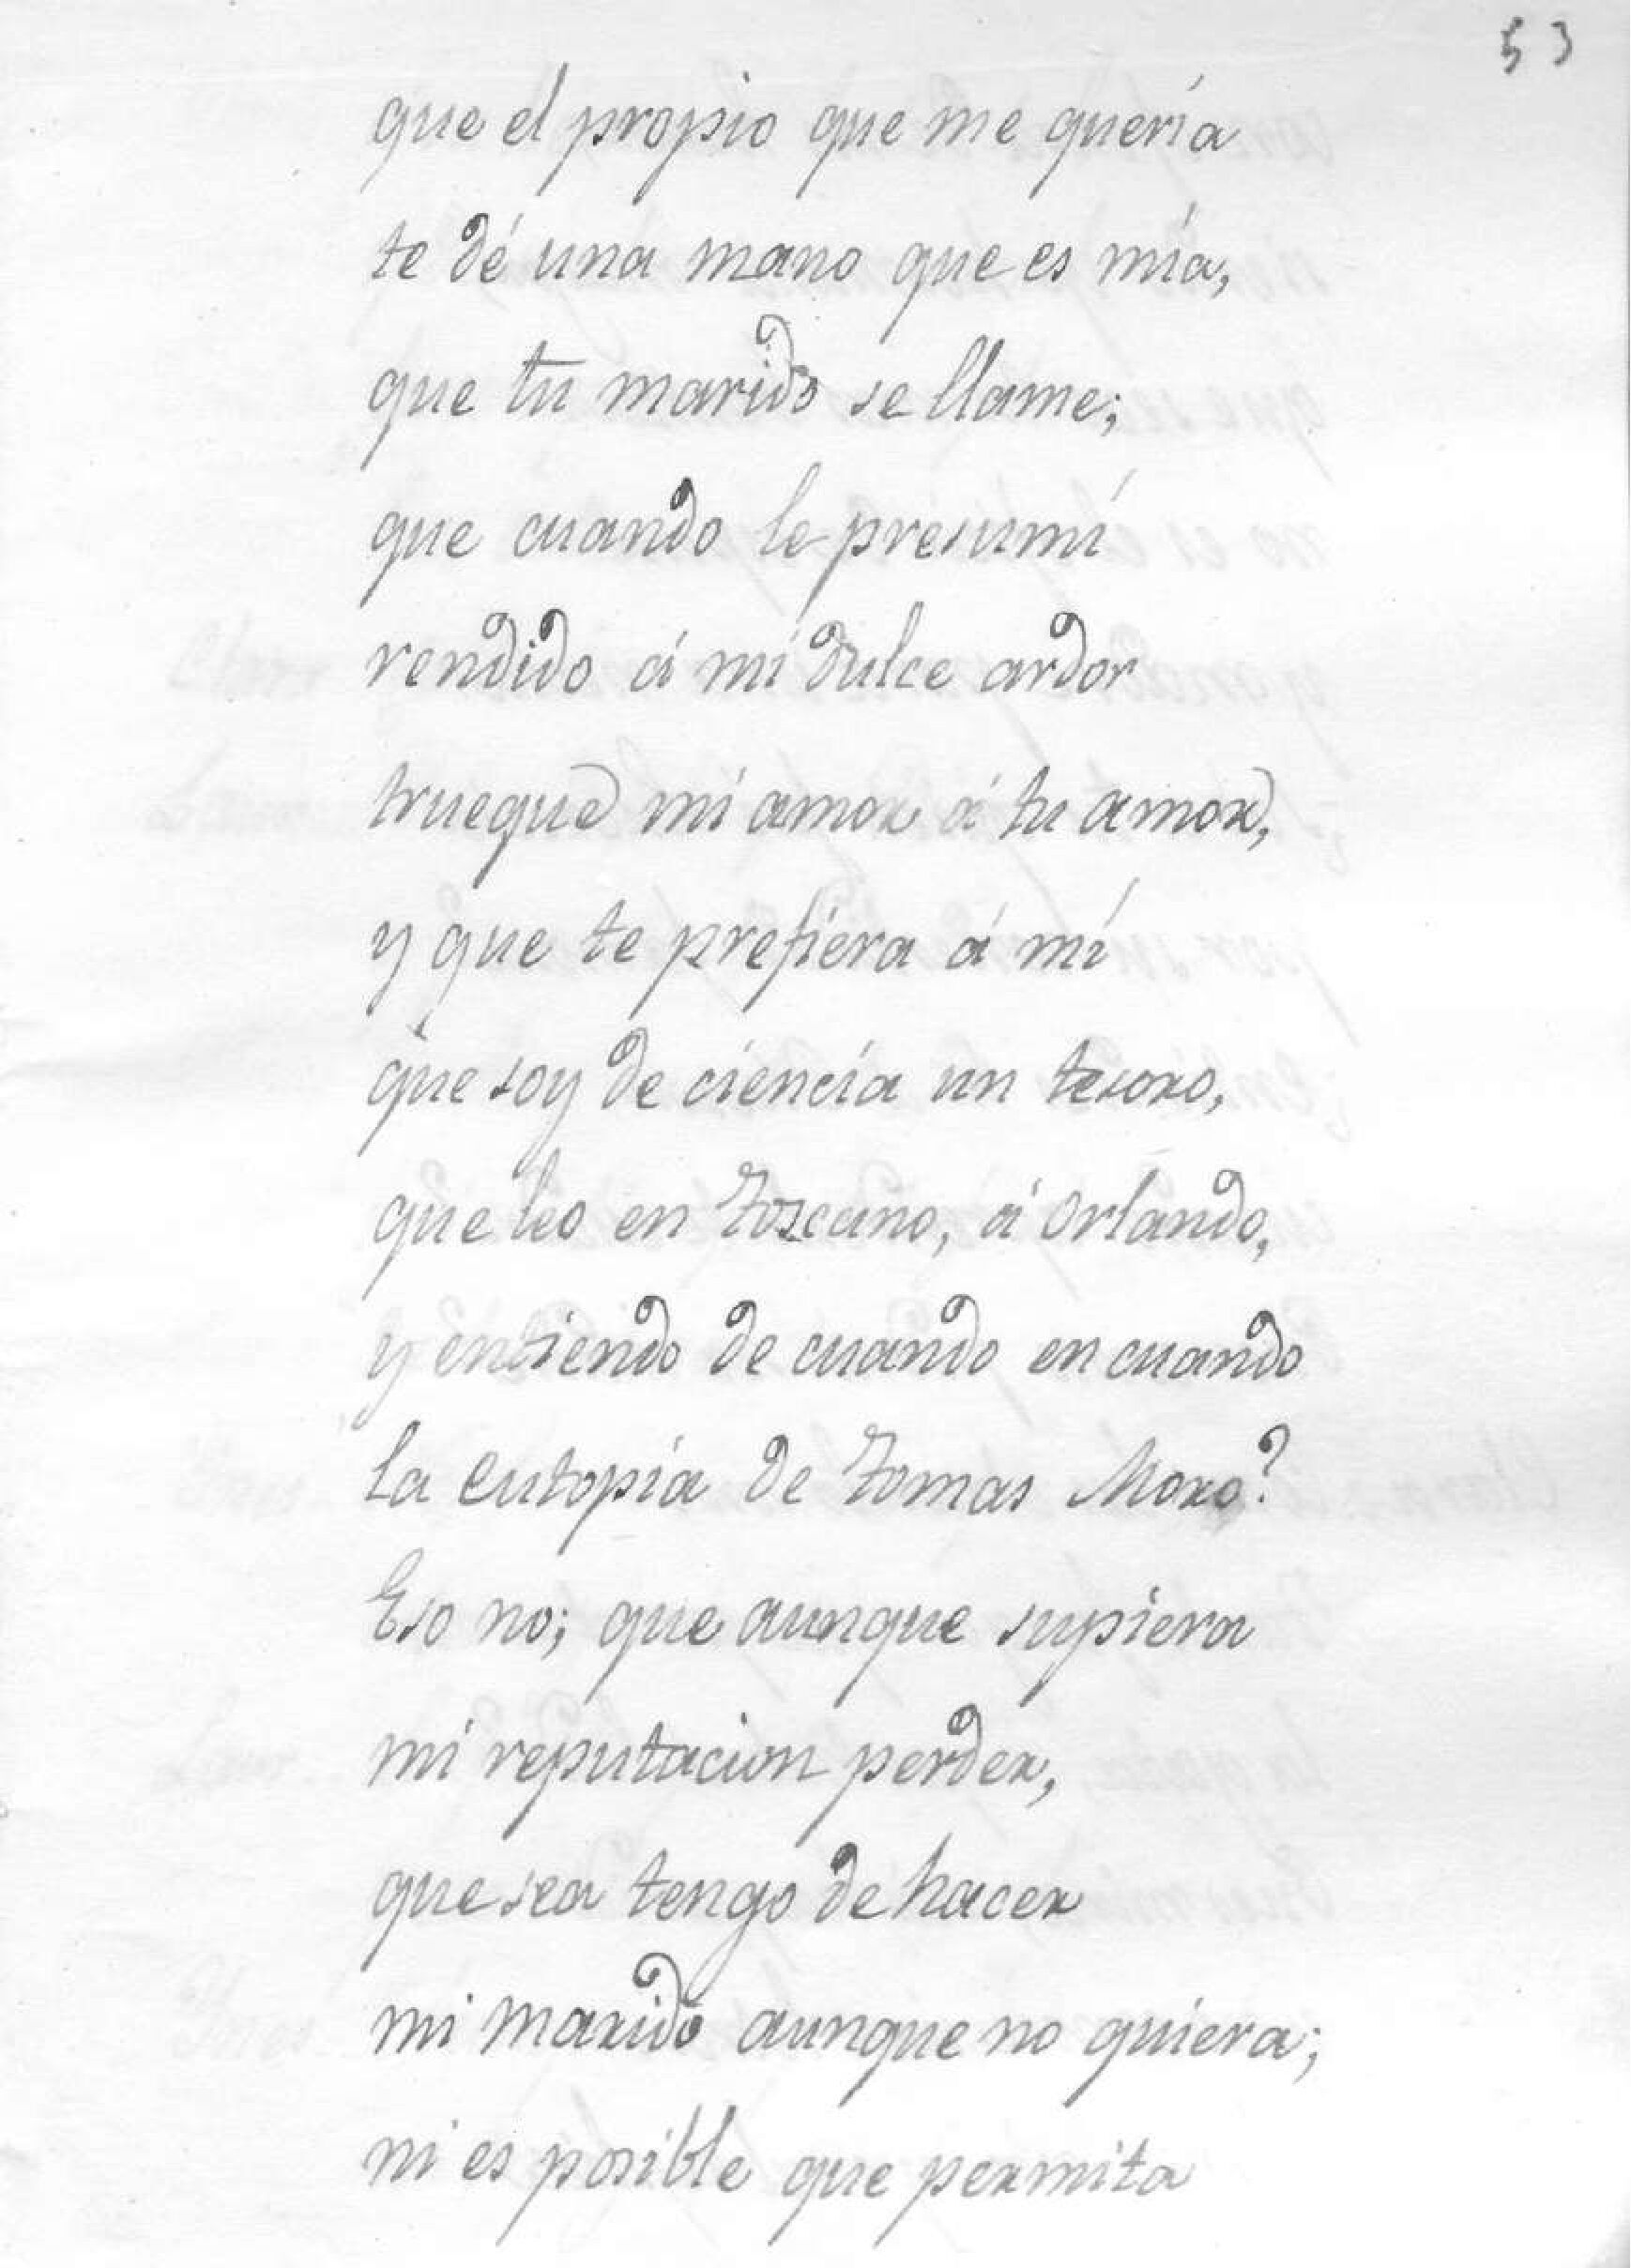 53
que el propio que me quería
te dé una mano que es mía,
que tu marido se llame;
que cuando le presumí
rendido á mi dulce ardor
trueque mi amor á tu amor,
y que te prefiera á mí
que soy de ciencia un tesoro,
que leo en Toscano, á Orlando,
y entiendo de cuando en cuando
la eutopia de Tomas Moro?
Eso no; que aunque supiera
mi reputacion perder,
que sea tengo de hacer
mi marido aunque no quiera;
ni es posible que permita